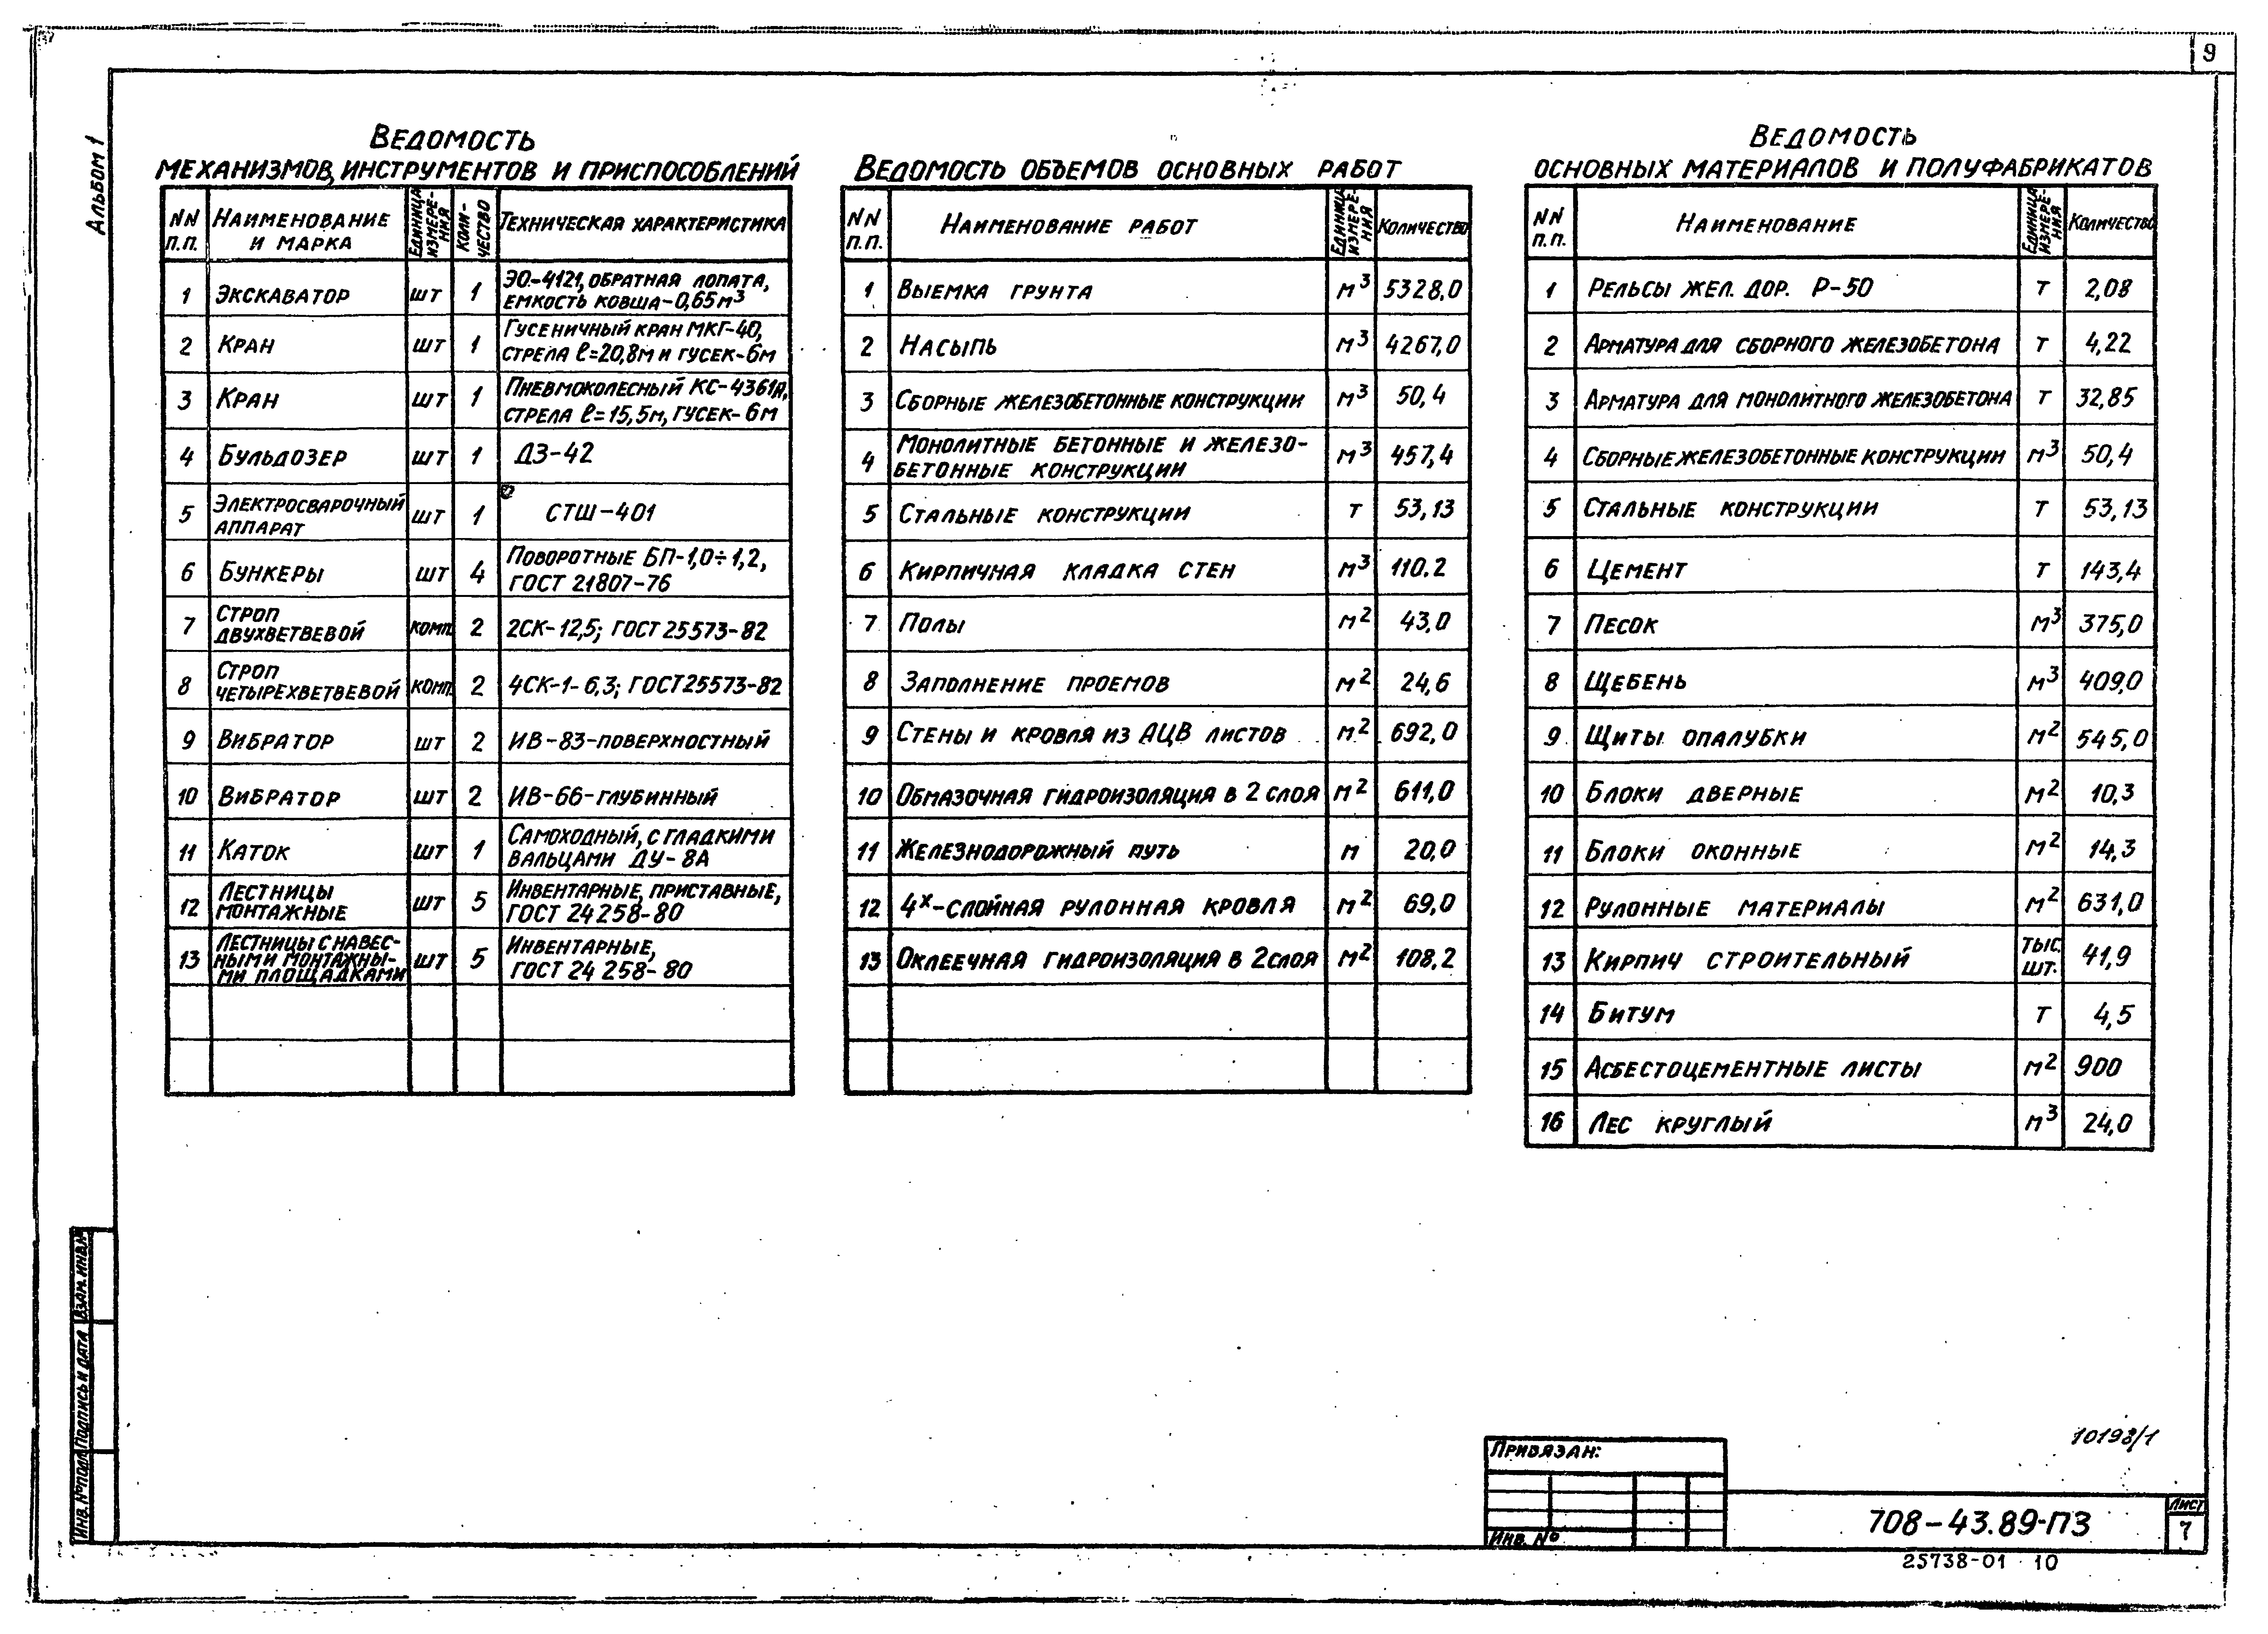 9
Альбом 1
Ведомость
механизмов, инструментов и приспособлений
NN п.п. Наименование и марка Единица измерения Количество Техническая характеристика
1 Экскаватор шт 1 ЭО-4121, обратная лопата,
емкость ковша-0,65м³
2 Кран шт 1 Гусеничный кран МКГ-40,
стрела ℓ=20,8м и гусек-6м
3 Кран шт 1 Пневмоколесный КС-4361А,
стрела ℓ=15,5м, гусек-6м
4 Бульдозер шт 1 ДЗ-42
5 Электросварочный
аппарат шт 1 СТШ-401
6 Бункеры шт 4 Поворотные БП-1,0÷1,2,
ГОСТ 21807-76
7 Строп
двухветвевой комп. 2 2СК-12,5; ГОСТ 25573-82
8 Строп
четырехветвевой комп. 2 4СК-1-6,3; ГОСТ 25573-82
9 Вибратор шт 2 ИВ-83-поверхностный
10 Вибратор шт 2 ИВ-66-глубинный
11 Каток шт 1 Самоходный, с гладкими
вальцами ДУ-8А
12 Лестницы
монтажные шт 5 Инвентарные, приставные,
ГОСТ 24258-80
13 Лестницы с навес-
ными монтажны-
ми площадками шт 5 Инвентарные,
ГОСТ 24 258-80
Ведомость объемов основных работ
NN п.п. Наименование работ Единица измере-ния Количество
1 Выемка грунта м³ 5328,0
2 Насыпь м³ 4267,0
3 Сборные железобетонные конструкции м³ 50,4
4 Монолитные бетонные и железо-
бетонные конструкции м³ 457,4
5 Стальные конструкции т 53,13
6 Кирпичная кладка стен м³ 110.2
7 Полы м² 43,0
8 Заполнение проемов м² 24,6
9 Стены и кровля из АЦВ листов м² 692,0
10 Обмазочная гидроизоляция в 2 слоя м² 611,0
11 Железнодорожный путь м 20,0
12 4х-слойная рулонная кровля м² 69,0
13 Оклеечная гидроизоляция в 2слоя м² 108,2
Ведомость
основных материалов и полуфабрикатов
NN п.п. Наименование Единица измере-ния Количество
1 Рельсы жел. дор. Р-50 т 2,08
2 Арматура для сборного железобетона т 4,22
3 Арматура для монолитного железобетона т 32,85
4 Сборные железобетонные конструкции м³ 50,4
5 Стальные конструкции т 53,13
6 Цемент т 143,4
7 Песок м³ 375,0
8 Щебень м³ 409,0
9 Щиты опалубки м² 545,0
10 Блоки дверные м² 10,3
11 Блоки оконные м² 14,3
12 Рулонные материалы м² 631,0
13 Кирпич строительный тыс. шт. 41,9
14 Битум т 4,5
15 Асбестоцементные листы м² 900
16 Лес круглый м³ 24,0
Инв. №подл. Подпись и дата Взам. инв.№
10198/1
Привязан:
Инв. №
708-43.89-ПЗ
Лист
7
25738-01 10